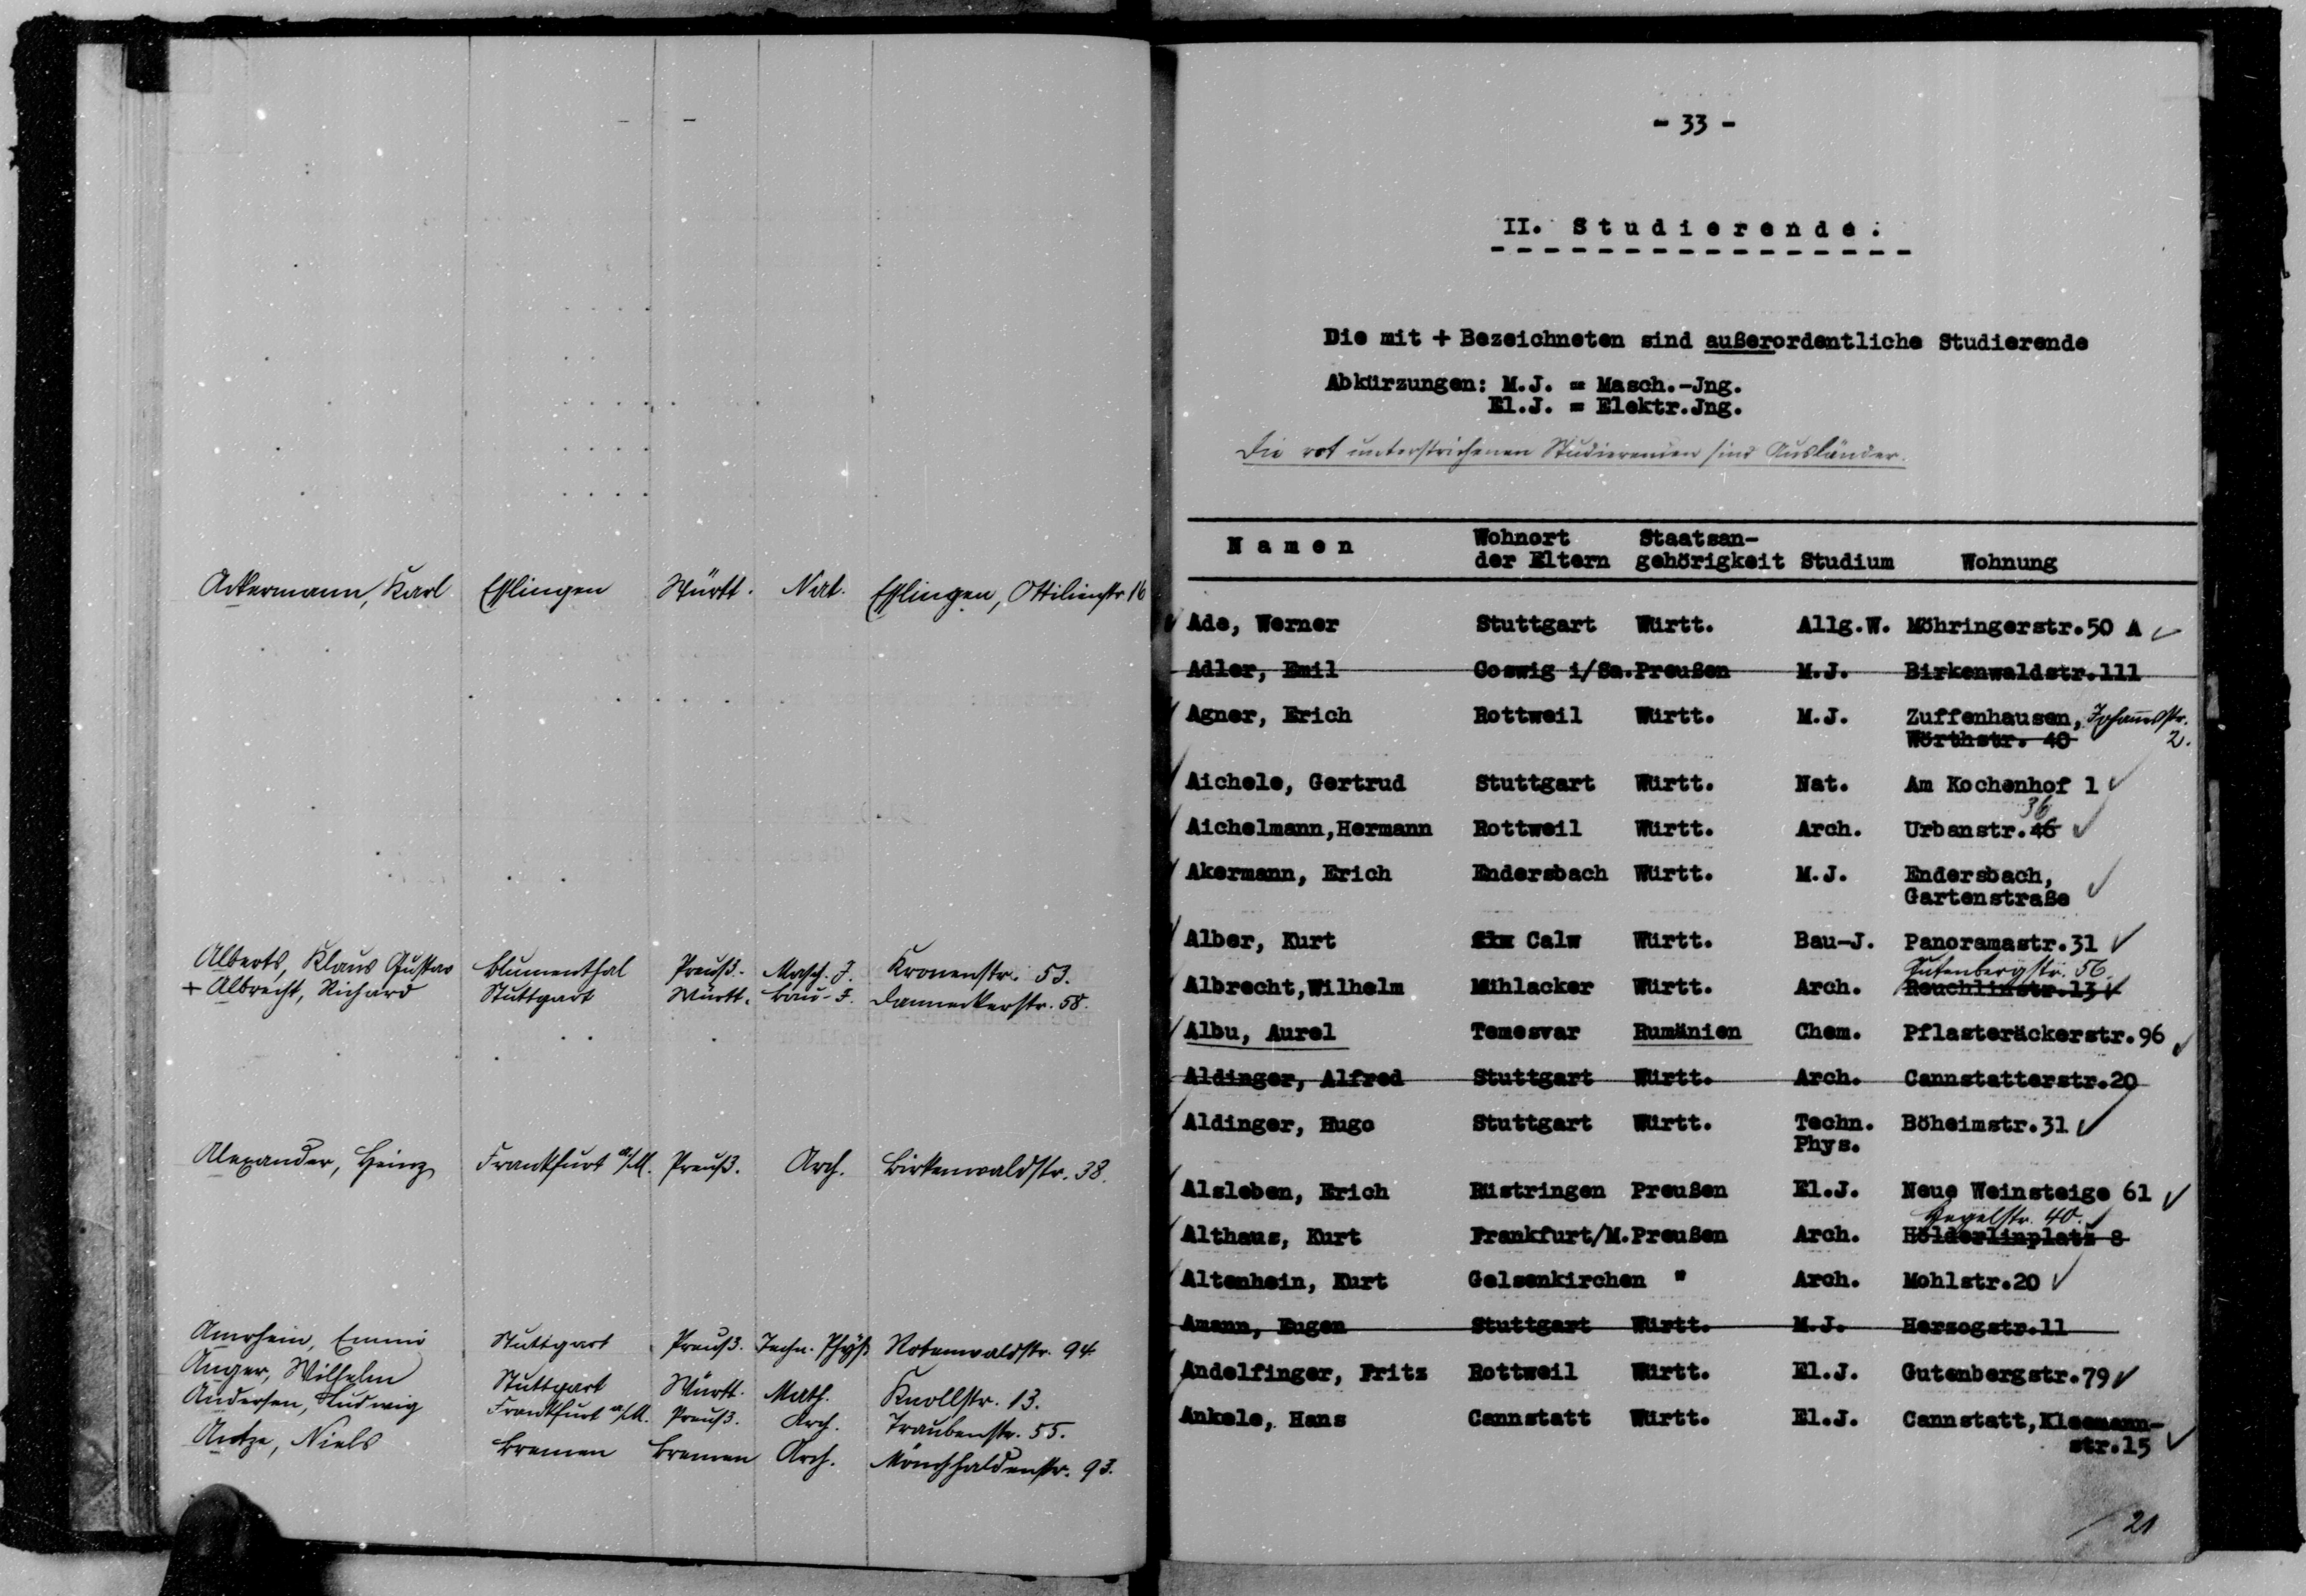 Ackermann, Karl Eßlingen Württ. Nat. Eßlingen, Ottilienstr. 16
Alberts, Klaus Gustav Blumenthal Preuß. Masch. J. Kronenstr. 53.
+ Albrecht, Richard Stuttgart Württ. Bau-J. Danneckerstr. 58.
Alexander, Heinz Frankfurt a/M. Preuß. Arch. Birkenwaldstr. 38.
Amrhein, Emmi Stuttgart Preuß. Techn. Phys. Robenwaldstr. 94.
Anger, Wilhelm Stuttgart Württ. Math. Knollstr. 13.
Andersen, Ludwig Frankfurt a/M. Preuß. Arch. Traubenstr. 55.
Antze, Niels Bremen Bremen Arch. Mönchhaldenstr. 93.
- 33 -
II. Studierende.
Die mit + Bezeichneten sind außerordentliche Studierende
Abkürzungen: M.J. = Masch.-Jng.
El.J. = Elektr.Jng.
Die rot unterstrichenen Studierenden sind Ausländer.
Namen Wohnort der Eltern Staatsan-gehörigkeit Studium Wohnung
Ade, Werner Stuttgart Württ. Allg.W. Möhringerstr.50 A
Adler, Emil Coswig i/Sa. Preußen M.J. Birkenwaldstr.111
Agner, Erich Rottweil Württ. M.J. Zuffenhausen, Johannesstr.
Wörthstr. 40 2.
Aichele, Gertrud Stuttgart Württ. Nat. Am Kochenhof 1
36
Aichelmann,Hermann Rottweil Württ. Arch. Urbanstr.46
Akermann, Erich Endersbach Württ. M.J. Endersbach,
Gartenstraße
Alber, Kurt Calw Württ. Bau-J. Panoramastr.31
Gutenbergstr. 56.
Albrecht,Wilhelm Mühlacker Württ. Arch. Reuchlinstr.13
Albu, Aurel Temesvar Rumänien Chem. Pflasteräckerstr.96
Aldinger, Alfred Stuttgart Württ. Arch. Cannstatterstr.20
Aldinger, Hugo Stuttgart Württ. Techn. Böheimstr.31
Phys.
Alsleben, Erich Rüstringen Preußen El.J. Neue Weinsteige 61
Hegelstr. 40.
Althaus, Kurt Frankfurt/M. Preußen Arch. Hölderlinplatz 8
Altenhein, Kurt Gelsenkirchen " Arch. Mohlstr.20
Amann, Eugen Stuttgart Württ. M.J. Herzogstr.11
Andelfinger, Fritz Rottweil Württ. El.J. Gutenbergstr.79
Ankele, Hans Cannstatt Württ. El.J. Cannstatt,Kleemann-
str.15
21